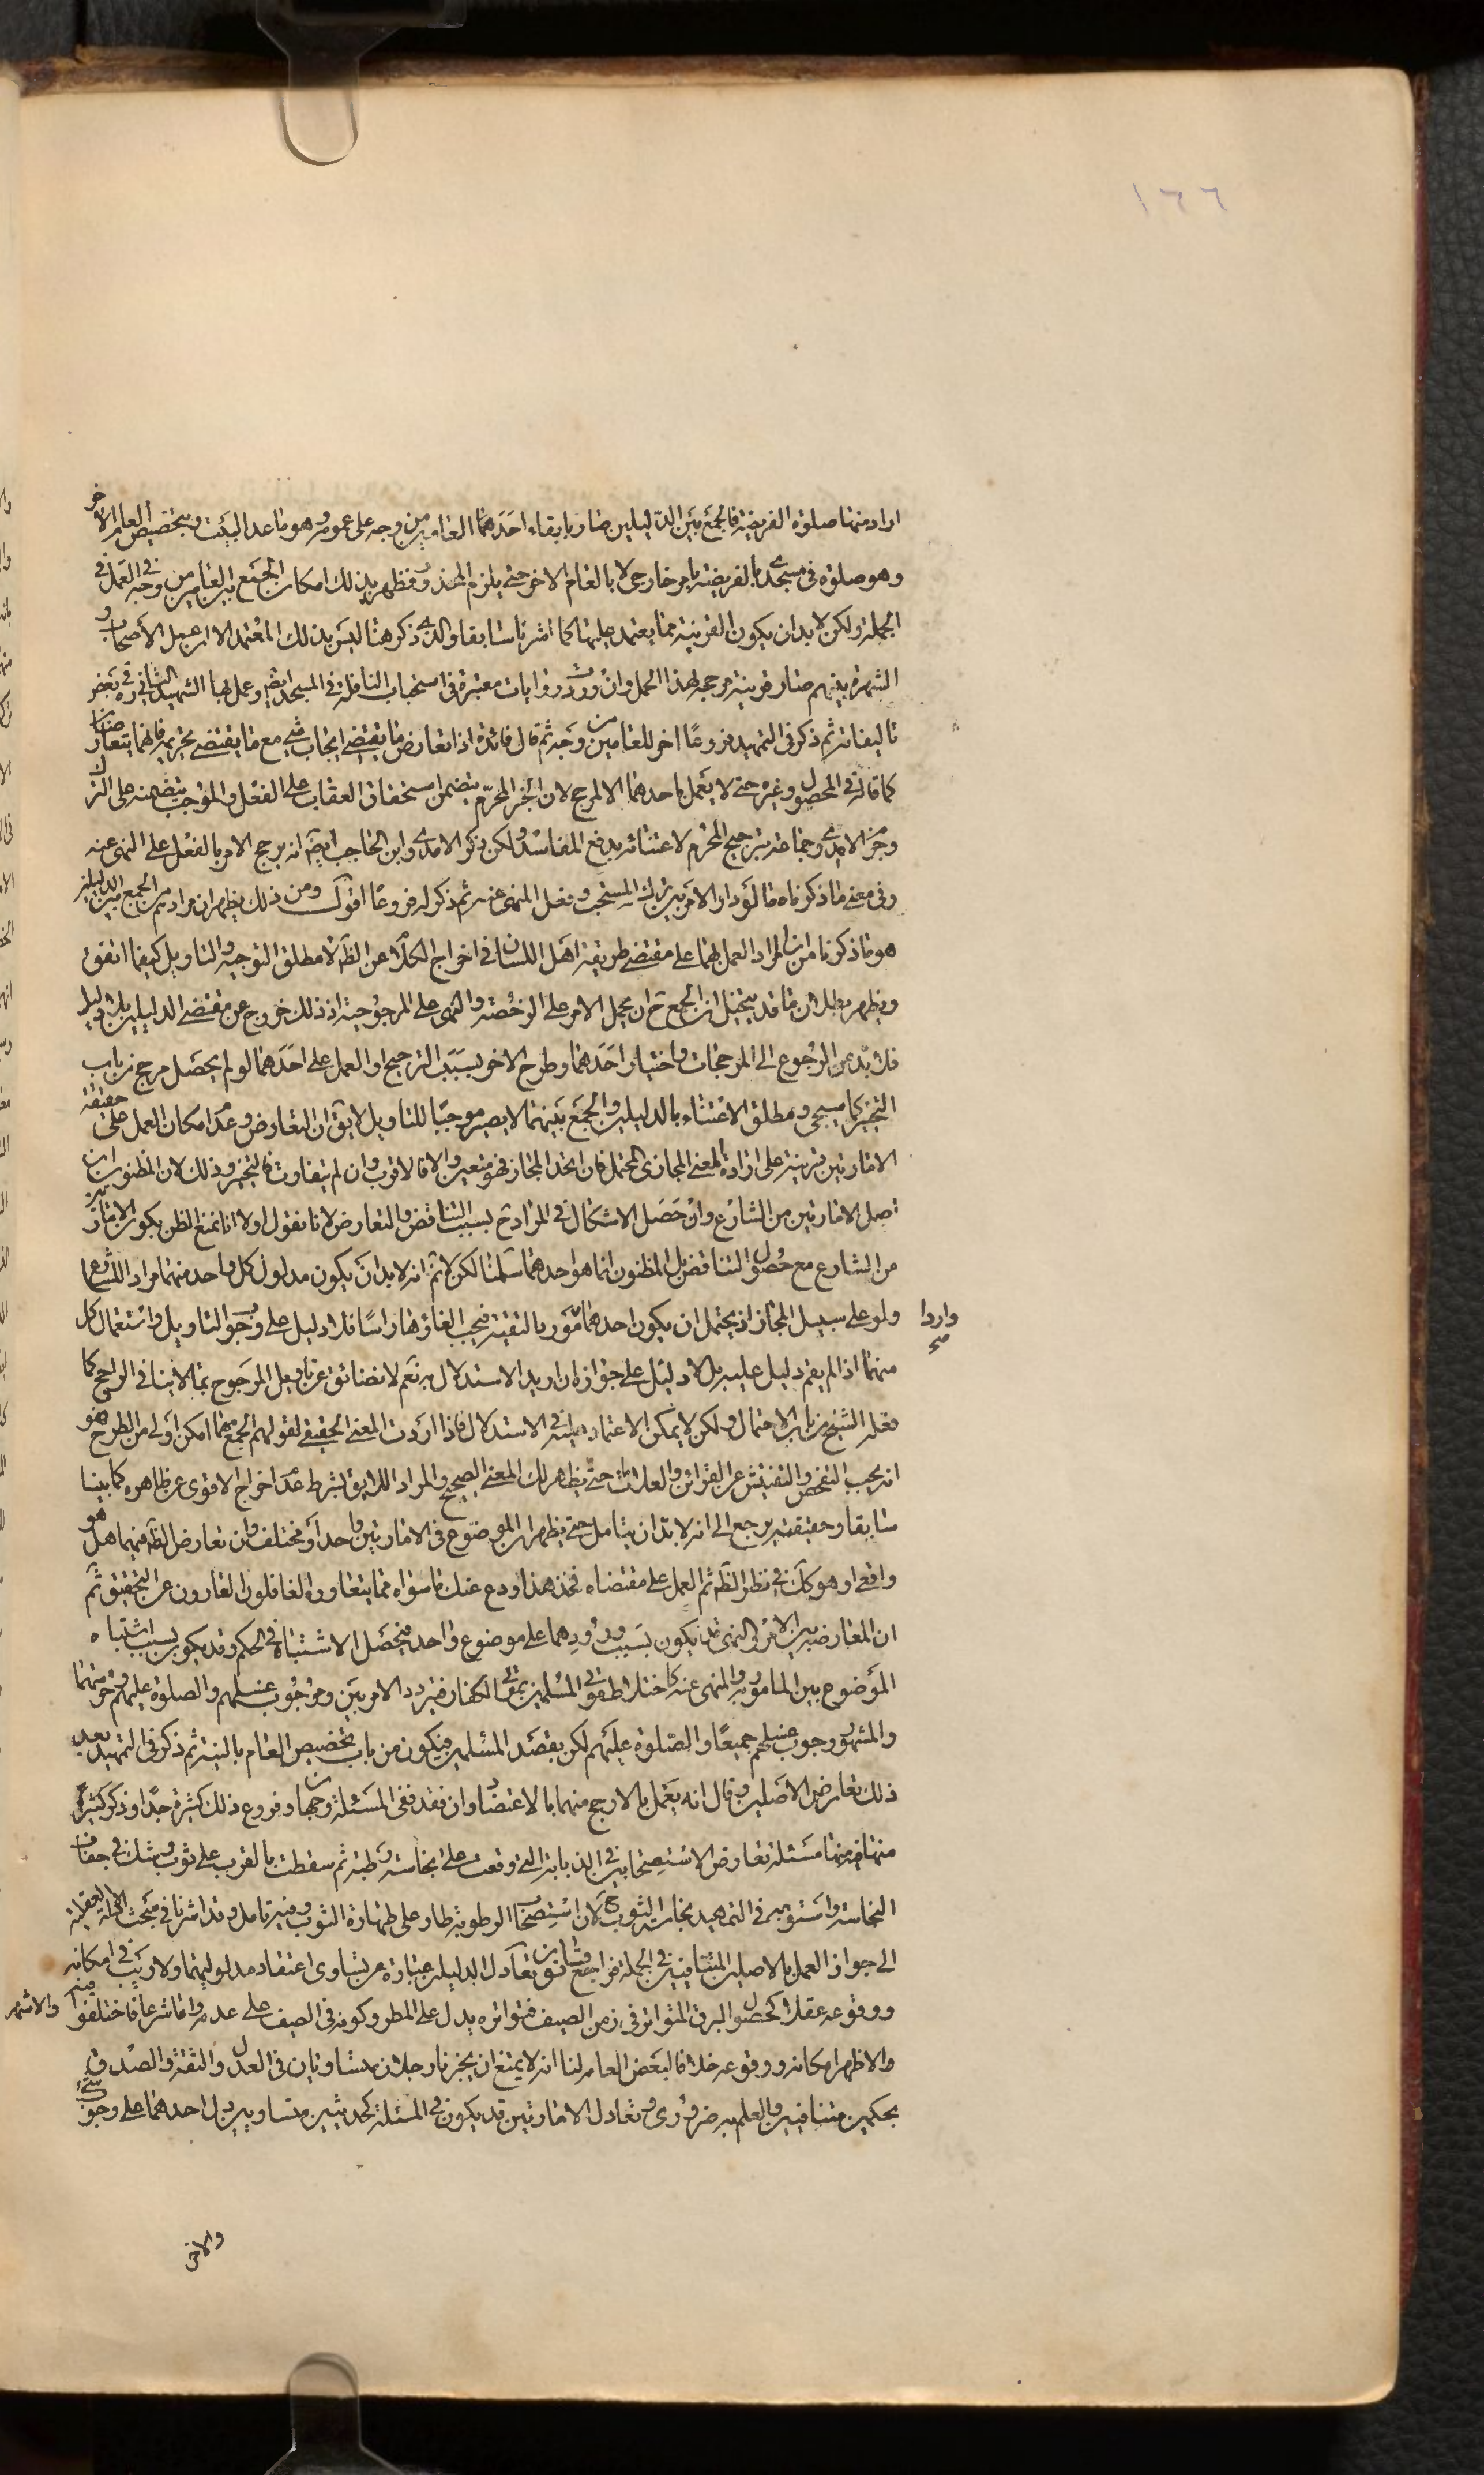 ١٦٦
اراد منها صلوة الفريضة فالجمع بين الدليلين صار بابقاء احدهما العامين من وجه على عمومه وهو ما عدا البيت وبتخصيص العام الاخر
وهو صلوة فى مسجدى بالفريضة بامر خارجى لا بالعام الاخر حتى يلزم المحذور فظهر بذلك امكان الجمع بين العامين من وجه فى العمل فى
الجملة ولكن لا بد ان يكون القرينة مما يعتمد عليها كما اشرنا سابقا والذى ذكر هنا ليس بذلك المعتمد الا ان عمل الأصحاب و
الشهرة بينهم صار قرينة مرجحة لهذا الحمل وان ورد روايات معتبرة فى استحباب النافلة فى المسجد ايضا وعمل بها الشهيد الثانى ره فى بعض
تاليفاته ثم ذكر فى التمهيد فروعًا اخر للعامين من وجه ثم قال فائدة اذا تعارض ما يقتضى ايجاب شىء مع ما يقتضى تحريمه فانهما يتعارضان
كما قاله فى المحصول وغيره حتى لا يعمل باحدهما الا لمرجح لان الخبر المحرم يتضمن استحقاق العقاب على الفعل والموجب يتضمنه على الترك
وجزم الامدى وجماعة بترجيح المحرم لاعتنائه بدفع المفاسد ولكن ذكر الامدى وابن الحاجب ايضا انه يرجح الامر بالفعل على النهى عنه
وفى معنى ما ذكرناه ما لو دار الامر بين ترك المستحب وفعل المنهى عنه ثم ذكر له فروعًا اقول ومن ذلك يظهر ان مرادهم بالجمع بين الدليلين
هو ما ذكرنا من ان المراد العمل بهما على مقتضى طريقة اهل اللسان فى اخراج الكلام عن الظ لا مطلق التوجيه والتاويل كيفما اتفق
ويظهر بطلان ما قد يتخيل ان الجمع ح ان يحمل الامر على الرخصة والنهى على المرجوحية اذ ذلك خروج عن مقتضى الدليلين بلا دليل
فلا بد من الرجوع الى المرجحات واختيار احدهما وطرح الاخر بسبب الترجيح او العمل على احدهما لو لم يحصل مرجح من باب
التخيير كما سيجىء ومطلق الاعتناء بالدليلين والجمع بينهما لا يصير موجبًا للتاويل لا يق ان التعارض وعدم امكان العمل على حقيقة
الامارتين قرينة على ارادة المعنى المجازى المحتمل فان اتحد المجاز فهو متعين والا فالاقرب وان لم يتفاوت فالتخيير وذلك لان المظنون ان
اصل الامارتين من الشارع وان حصل الاشكال فى المراد ح بسبب التناقض والتعارض لانا نقول اولا انا نمنع الظن بكون الامارتين
من الشارع مع حصول التناقض بل المظنون انما هو احدهما سلمنا لكن لا ثم انه لا بد ان يكون مدلول كل واحد منهما مراد الشارع
ولو على سبيل المجاز اذ يحتمل ان يكون احدهما مورد بالتقية فيجب الغاؤها راسًا فلا دليل على وجوب التاويل واستعمال كل
واردا صح
منهما اذا لم يقم دليل عليه بل لا دليل على جوازه ان اريد الاستدلال به نعم لا نضائق عن تاويل المرجوح بما لا ينافى الراجح كما
فعله الشيخ من باب الاحتمال ولكن لا يمكن الاعتماد عليه فى الاستدلال فاذا اردت المعنى الحقيقى لقولهم الجمع مهما امكن اولى من الطرح هو
انه يجب التفحص والتفتيش عن القرائن والعلامات حتى يظهر لك المعنى الصحيح والمراد اللايق بشرط عدم اخراج الاقوى عن ظاهره كما بينا
سابقا وحقيقته يرجع الى انه لا بد ان يتامل حتى يظهر ان الموضوع فى الامارتين واحد او مختلف وان تعارض الظ منهما هل هو
واقعى او هو كك فى نظر الظ ثم العمل على مقتضاه فخذ هذا ودع عنك ما سواه مما يتعاوره الغافلون العارون عن التحقيق ثم
ان المعارضة بين الامر والنهى قد يكون بسبب ورودهما على موضوع واحد فيحصل الاشتباه فى الحكم وقد يكون بسبب اشتباه
الموضوع بين المامور به والمنهى عنه كاختلاط موتى المسلمين بموتى الكفار فيتردد الامر بين وجوب غسلهم والصلوة عليهم وحرمتهما
والمشهور وجوب غسلهم جميعًا والصلوة عليهم لكن بقصد المسلمين فيكون من باب تخصيص العام بالنية ثم ذكر فى التمهيد بعد
ذلك تعارض الاصلين وقال انه يعمل بالارجح منهما بالاعتضاد وان فقد ففى المسئلة وجهان وفروع ذلك كثيرة جدًا وذكر كثيرًا
منها فمنها مسئلة تعارض الاستصحابين فى الذبابة التى وقعت على نجاسة رطبة ثم سقطت بالقرب على ثوب وشك فى جفاف
النجاسة واستقرب فى التمهيد نجاسة الثوب لان استصحاب الرطوبة طار على طهارة الثوب وفيه تامل وقد اشرنا فى مبحث الادلة العقلية
الى جواز العمل بالاصلين المتنافيين فى الجملة فراجع قانون تعادل الدليلين عبارة عن تساوى اعتقاد مدلوليهما ولا ريب فى امكانه
ووقوعه عقلا كحصول البرق المتواتر فى زمن الصيف فتواتره يدل على المطر وكونه فى الصيف على عدمه واما شرعا فاختلفوا فيه والاشهر
والاظهر امكانه ووقوعه خلافا لبعض العامة لنا انه لا يمتنع ان يخبرنا رجلان متساويان فى العدل والثقة والصدق
بحكمين متنافيين والعلم به ضرورى وتعادل الامارتين قد يكون فى المسئلة كحديثين متساويين دل احدهما على وجوب شىء
والاخر